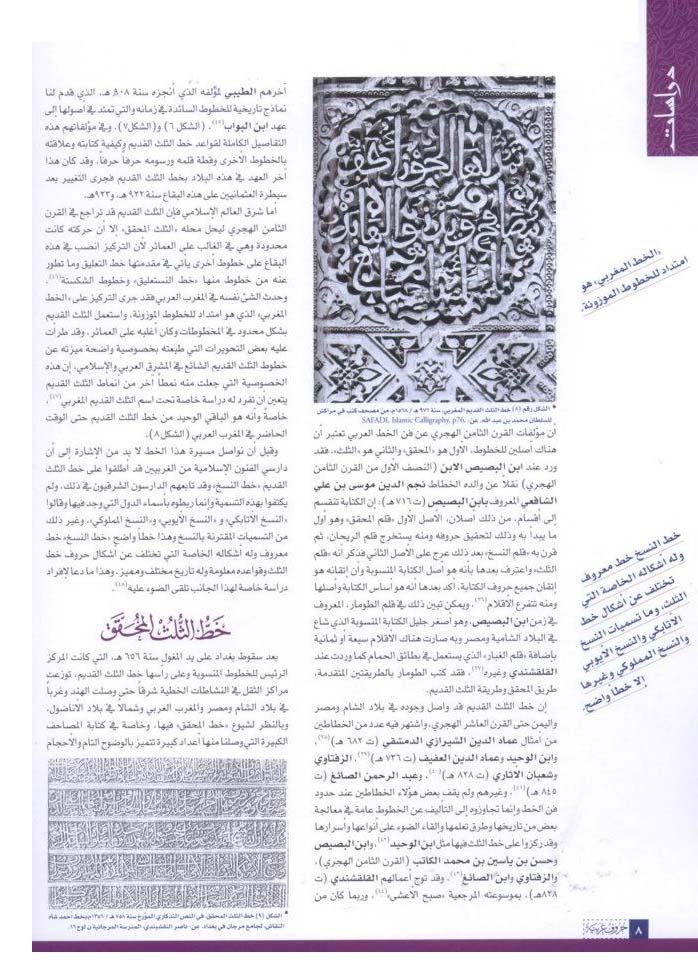 دراسات
«الخط المغربي» هو
امتداد للخطوط الموزونة.
خط النسخ خط معروف
وله أشكاله الخاصة التي
تختلف عن أشكال خط
الثلث، وما تسميات النسخ
الأتابكي والنسخ الأيوبي
والنسخ المملوكي وغيرها
إلا خطأ واضح.
* الشكل رقم (٨) خط الثلث القديم المغربي، سنة ٩٧٦ هـ / ١٥٦٨م، من مصحف كتب في مراكش
للسلطان محمد بن عبد الله. عن: SAFADI, Islamic Calligraphy, p76.
أن مؤلفات القرن الثامن الهجري عن فن الخط العربي تعتبر أن
هناك أصلين للخطوط، الأول هو «المحقق» والثاني هو «الثلث»، فقد
ورد عند ابن البصيص الابن (النصف الأول من القرن الثامن
الهجري) نقلاً عن والده الخطاط نجم الدين موسى بن علي
الشافعي المعروف بابن البصيص (ت ٧١٦ هـ)، إن الكتابة تنقسم
إلى أقسام، من ذلك أصلان، الأصل الأول «قلم المحقق» وهو أول
ما يبدأ به وذلك لتحقيق حروفه ومنه يستخرج قلم الريحان، ثم
قرن به «قلم النسخ» بعد ذلك عرج على الأصل الثاني فذكر أنه «قلم
الثلث» واعترف بعدها بأنه هو أصل الكتابة المنسوبة وأن إتقانه هو
إتقان جميع حروف الكتابة، أكد بعدها أنه هو أساس الكتابة وأصلها
ومنه تتفرع الأقلام(٣٦). ويمكن تبين ذلك في قلم الطومار، المعروف
في زمن ابن البصيص، وهو أصغر جليل الكتابة المنسوبة الذي شاع
في البلاد الشامية ومصر وبه صارت هناك الأقلام سبعة أو ثمانية
بإضافة «قلم الغبار» الذي يستعمل في بطائق الحمام كما وردت عند
القلقشندي وغيره(٣٧)، فقد كتب الطومار بالطريقتين المتقدمة،
طريق المحقق وطريقة الثلث القديم.
إن خط الثلث القديم قد واصل وجوده في بلاد الشام ومصر
واليمن حتى القرن العاشر الهجري، واشتهر فيه عدد من الخطاطين
من أمثال عماد الدين الشيرازي الدمشقي (ت ٦٨٢ هـ)(٣٨)،
وابن الوحيد وعماد الدين العفيف (ت ٧٣٦ هـ)(٣٩)، الزفتاوي
وشعبان الآثاري (ت ٨٢٨ هـ)(٤٠)، وعبد الرحمن الصائغ (ت
٨٤٥ هـ)(٤١)، وغيرهم ولم يقف بعض هؤلاء الخطاطين عند حدود
فن الخط وإنما تجاوزوه إلى التأليف عن الخطوط عامة في معالجة
بعض من تاريخها وطرق تعلمها وإلقاء الضوء على أنواعها وأسرارها
وقد ركزوا على خط الثلث فيها مثل ابن الوحيد(٤٢)، وابن البصيص
وحسن بن ياسين بن محمد الكاتب (القرن الثامن الهجري)،
والزفتاوي وابن الصائغ(٤٣)، وقد توج أعمالهم القلقشندي (ت
٨٢٨هـ)، بموسوعته المرجعية «صبح الأعشى»(٤٤)، وربما كان من
آخرهم الطيبي لمؤلفه الذي أنجزه سنة ٩٠٨ هـ، الذي قدم لنا
نماذج تاريخية للخطوط السائدة في زمانه والتي تمتد في أصولها إلى
عهد ابن البواب(٤٥). (الشكل ٦) و(الشكل٧). وفي مؤلفاتهم هذه
التفاصيل الكاملة لقواعد خط الثلث القديم وكيفية كتابته وعلاقته
بالخطوط الأخرى وقطة قلمه ورسومه حرفاً حرفاً. وقد كان هذا
آخر العهد في هذه البلاد بخط الثلث القديم فجرى التغيير بعد
سيطرة العثمانيين على هذه البقاع سنة ٩٢٢ هـ، و٩٢٣هـ.
أما شرق العالم الإسلامي فإن الثلث القديم قد تراجع في القرن
الثامن الهجري ليحل محله «الثلث المحقق» إلا أن حركته كانت
محدودة وهي في الغالب على العمائر لأن التركيز انصب في هذه
البقاع على خطوط أخرى يأتي في مقدمتها خط التعليق وما تطور
عنه من خطوط منها «خط النستعليق» وخطوط الشكستة(٤٦).
وحدث الشئ نفسه في المغرب العربي فقد جرى التركيز على «الخط
المغربي» الذي هو امتداد للخطوط الموزونة، واستعمل الثلث القديم
بشكل محدود في المخطوطات وكان أغلبه على العمائر. وقد طرأت
عليه بعض التحويرات التي طبعته بخصوصية واضحة ميزته عن
خطوط الثلث القديم الشائع في المشرق العربي والإسلامي، إن هذه
الخصوصية التي جعلت منه نمطاً آخر من أنماط الثلث القديم
يتعين أن تفرد له دراسة خاصة تحت اسم الثلث القديم المغربي(٤٧)،
خاصةً وأنه هو الباقي الوحيد من خط الثلث القديم حتى الوقت
الحاضر في المغرب العربي (الشكل٨).
وقبل أن نواصل مسيرة هذا الخط لا بد من الإشارة إلى أن
دارسي الفنون الإسلامية من الغربيين قد أطلقوا على خط الثلث
القديم «خط النسخ»، وقد تابعهم الدارسون الشرقيون في ذلك، ولم
يكتفوا بهذه التسمية وإنما ربطوه بأسماء الدول التي وجد فيها وقالوا
«النسخ الأتابكي» و «النسخ الأيوبي» و«النسخ المملوكي»، وغير ذلك
من التسميات المقترنة بالنسخ وهذا خطأ واضح «خط النسخ» خط
معروف وله أشكاله الخاصة التي تختلف عن أشكال حروف خط
الثلث وقواعده معلومة وله تاريخ مختلف ومميز. وهذا ما دعا لإفراد
دراسة خاصة لهذا الجانب تلقى الضوء عليه(٤٨).
خط الثلث المحقق
بعد سقوط بغداد على يد المغول سنة ٦٥٦ هـ، التي كانت المركز
الرئيس للخطوط المنسوبة وعلى رأسها خط الثلث القديم، توزعت
مراكز الثقل في النشاطات الخطية شرقاً حتى وصلت الهند وغرباً
في بلاد الشام ومصر والمغرب العربي وشمالاً في بلاد الأناضول،
وبالنظر لشيوع «خط المحقق» فيها، وخاصة في كتابة المصاحف
الكبيرة التي وصلنا منها أعداد كبيرة تتميز بالوضوح التام والأحجام
* الشكل (٩) خط الثلث المحقق، في النص التذكاري المؤرخ سنة ٧٥٨ هـ / ١٣٥٦م بخط أحمد شاه
النقاش، لجامع مرجان في بغداد. عن: ناصر النقشبندي، المدرسة المرجانية ن لوح ١٦.
٨ حروف عربية